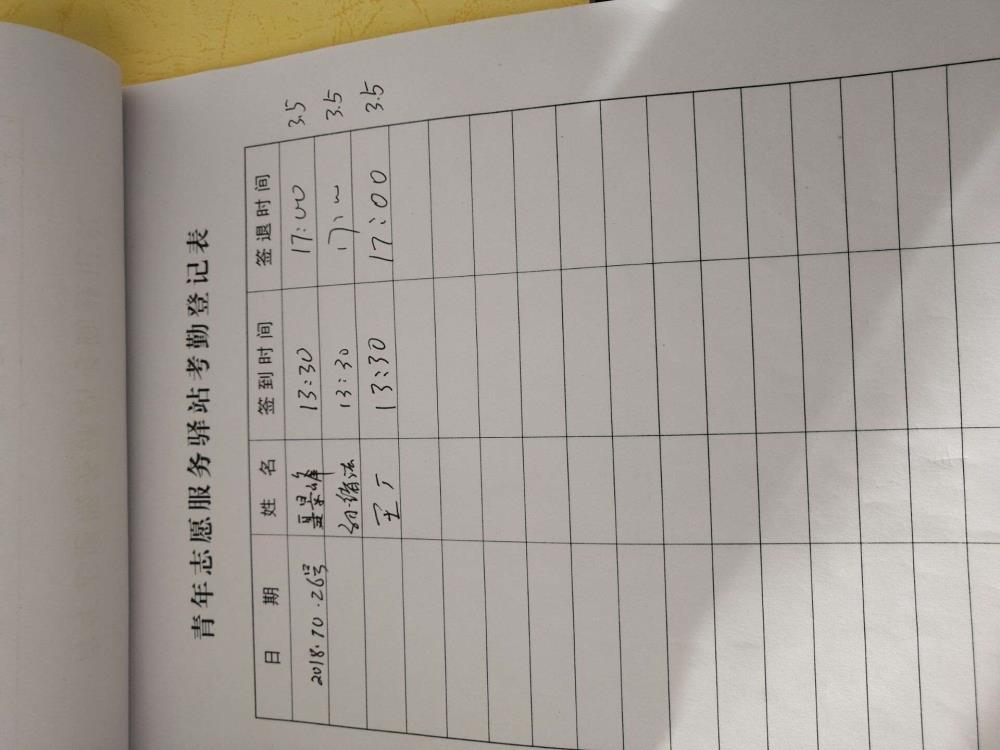 青年志愿服务驿站考勤登记表
日 期 姓 名 签到时间 签退时间
2018.10.26号 夏景峰 13:30 17:00 3.5
13:30 3.5
王广 13:30 17:00 3.5